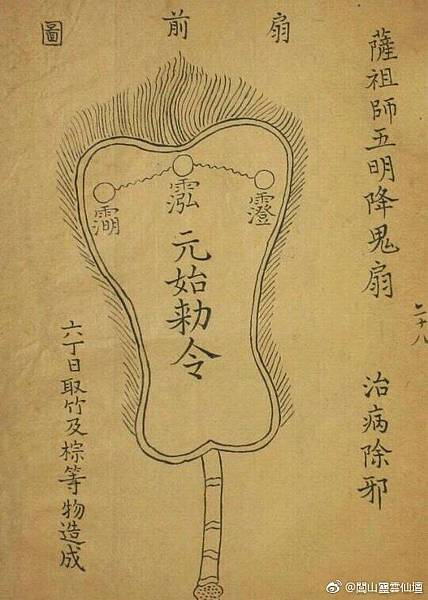 扇前圖
薩祖師五明降鬼扇 治病除邪
二十八
元始勅令
六丁日取竹及棕等物造成
@閭山靈雲仙壇